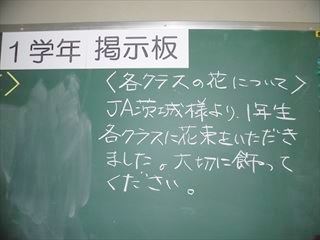 1学年 掲示板
〈各クラスの花について〉
JA茨城様より、1年生
各クラスに花束をいただき
ました。大切に飾って
ください。